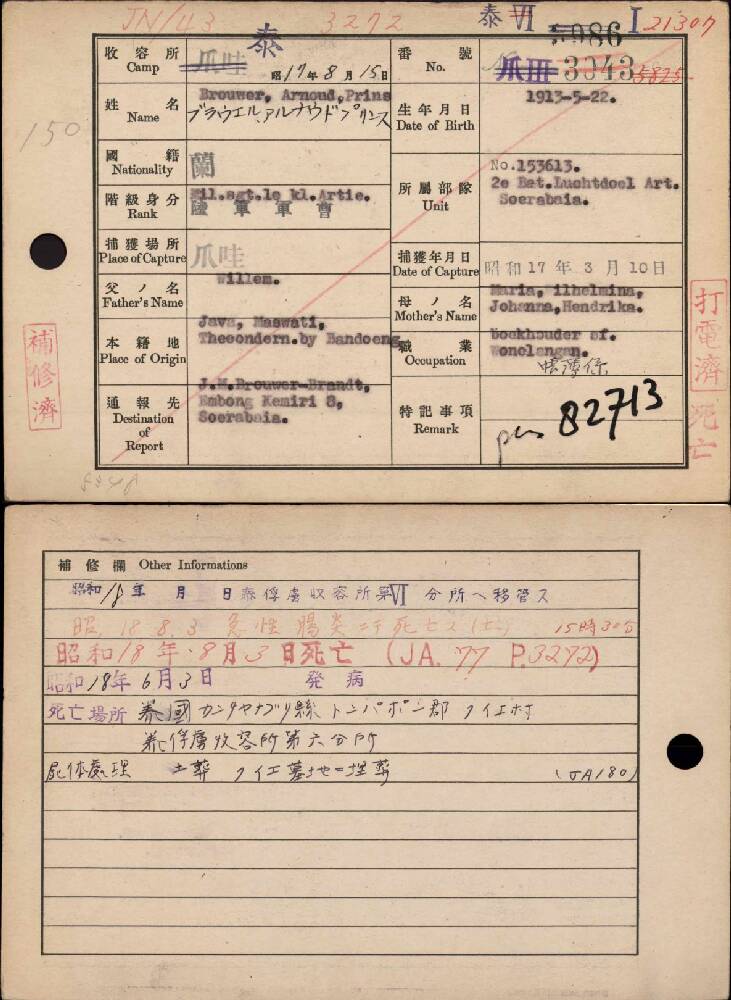 JN/43 3272 泰 VI 5086 I 21307
收容所 Camp 爪哇 泰 昭17年8月15日
番號 No. 爪III 3043 5825
姓名 Name Brouwer, Arnoud,Prins
ブラウエル、アルナウドプリンス
生年月日 Date of Birth 1913-5-22.
150
國籍 Nationality 蘭
階級身分 Rank Mil.sgt.1e kl.Artie.
陸軍軍曹
所屬部隊 Unit No.153613.
2e Bat.Luchtdoel Art.
Soerabaia.
捕獲場所 Place of Capture 爪哇
捕獲年月日 Date of Capture 昭和17年3月10日
父ノ名 Father's Name Willem.
母ノ名 Mother's Name Maria, Wilhelmina,
Johanna,Hendrika.
本籍地 Place of Origin Java, Maswati,
Theeondern.by Bandoeng
職業 Occupation boekhouder sf.
Wonolangan.
通報先 Destination of Report J.M.Brouwer-Brandt,
Embong Kemiri 8,
Soerabaia.
特記事項 Remark 82713
補修濟
打電濟
死亡
補修欄 Other Informations
昭和18年 月 日泰俘虜收容所第VI分所ヘ移管ス
昭18.8.3 急性腸炎ニテ死亡ス 15時30分
昭和18年8月3日死亡 (JA.77 P.3272)
昭和18年6月3日 発病
死亡場所 泰國カンチャナブリ縣トンパポン郡クイエ村
泰俘虜收容所第六分所
屍体處理 土葬 クイエ墓地ニ埋葬 (JA180)